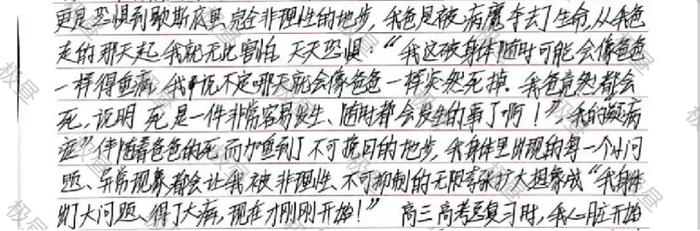 更是恐惧到歇斯底里、完全非理性的地步，我爸是被病魔夺去了生命，从我爸
走的那天起 我就无比害怕 天天恐惧：“我这破身体随时可能会像爸爸
一样得重病 我说不定哪天就会像爸爸一样突然死掉。我爸竟然都会
死，证明 死是一件非常容易发生、随时都会发生的事了啊！”，我的疑病
症”伴随着爸爸的死 而加重到了不可挽回的地步，我身体里出现的每一个小问
题、异常现象都会让我被非理性、不可抑制的无限夸张扩大想象成“我身体
出了大问题、得了大病，现在才刚刚开始！” 高三高考总复习时，我心脏开始
极昼